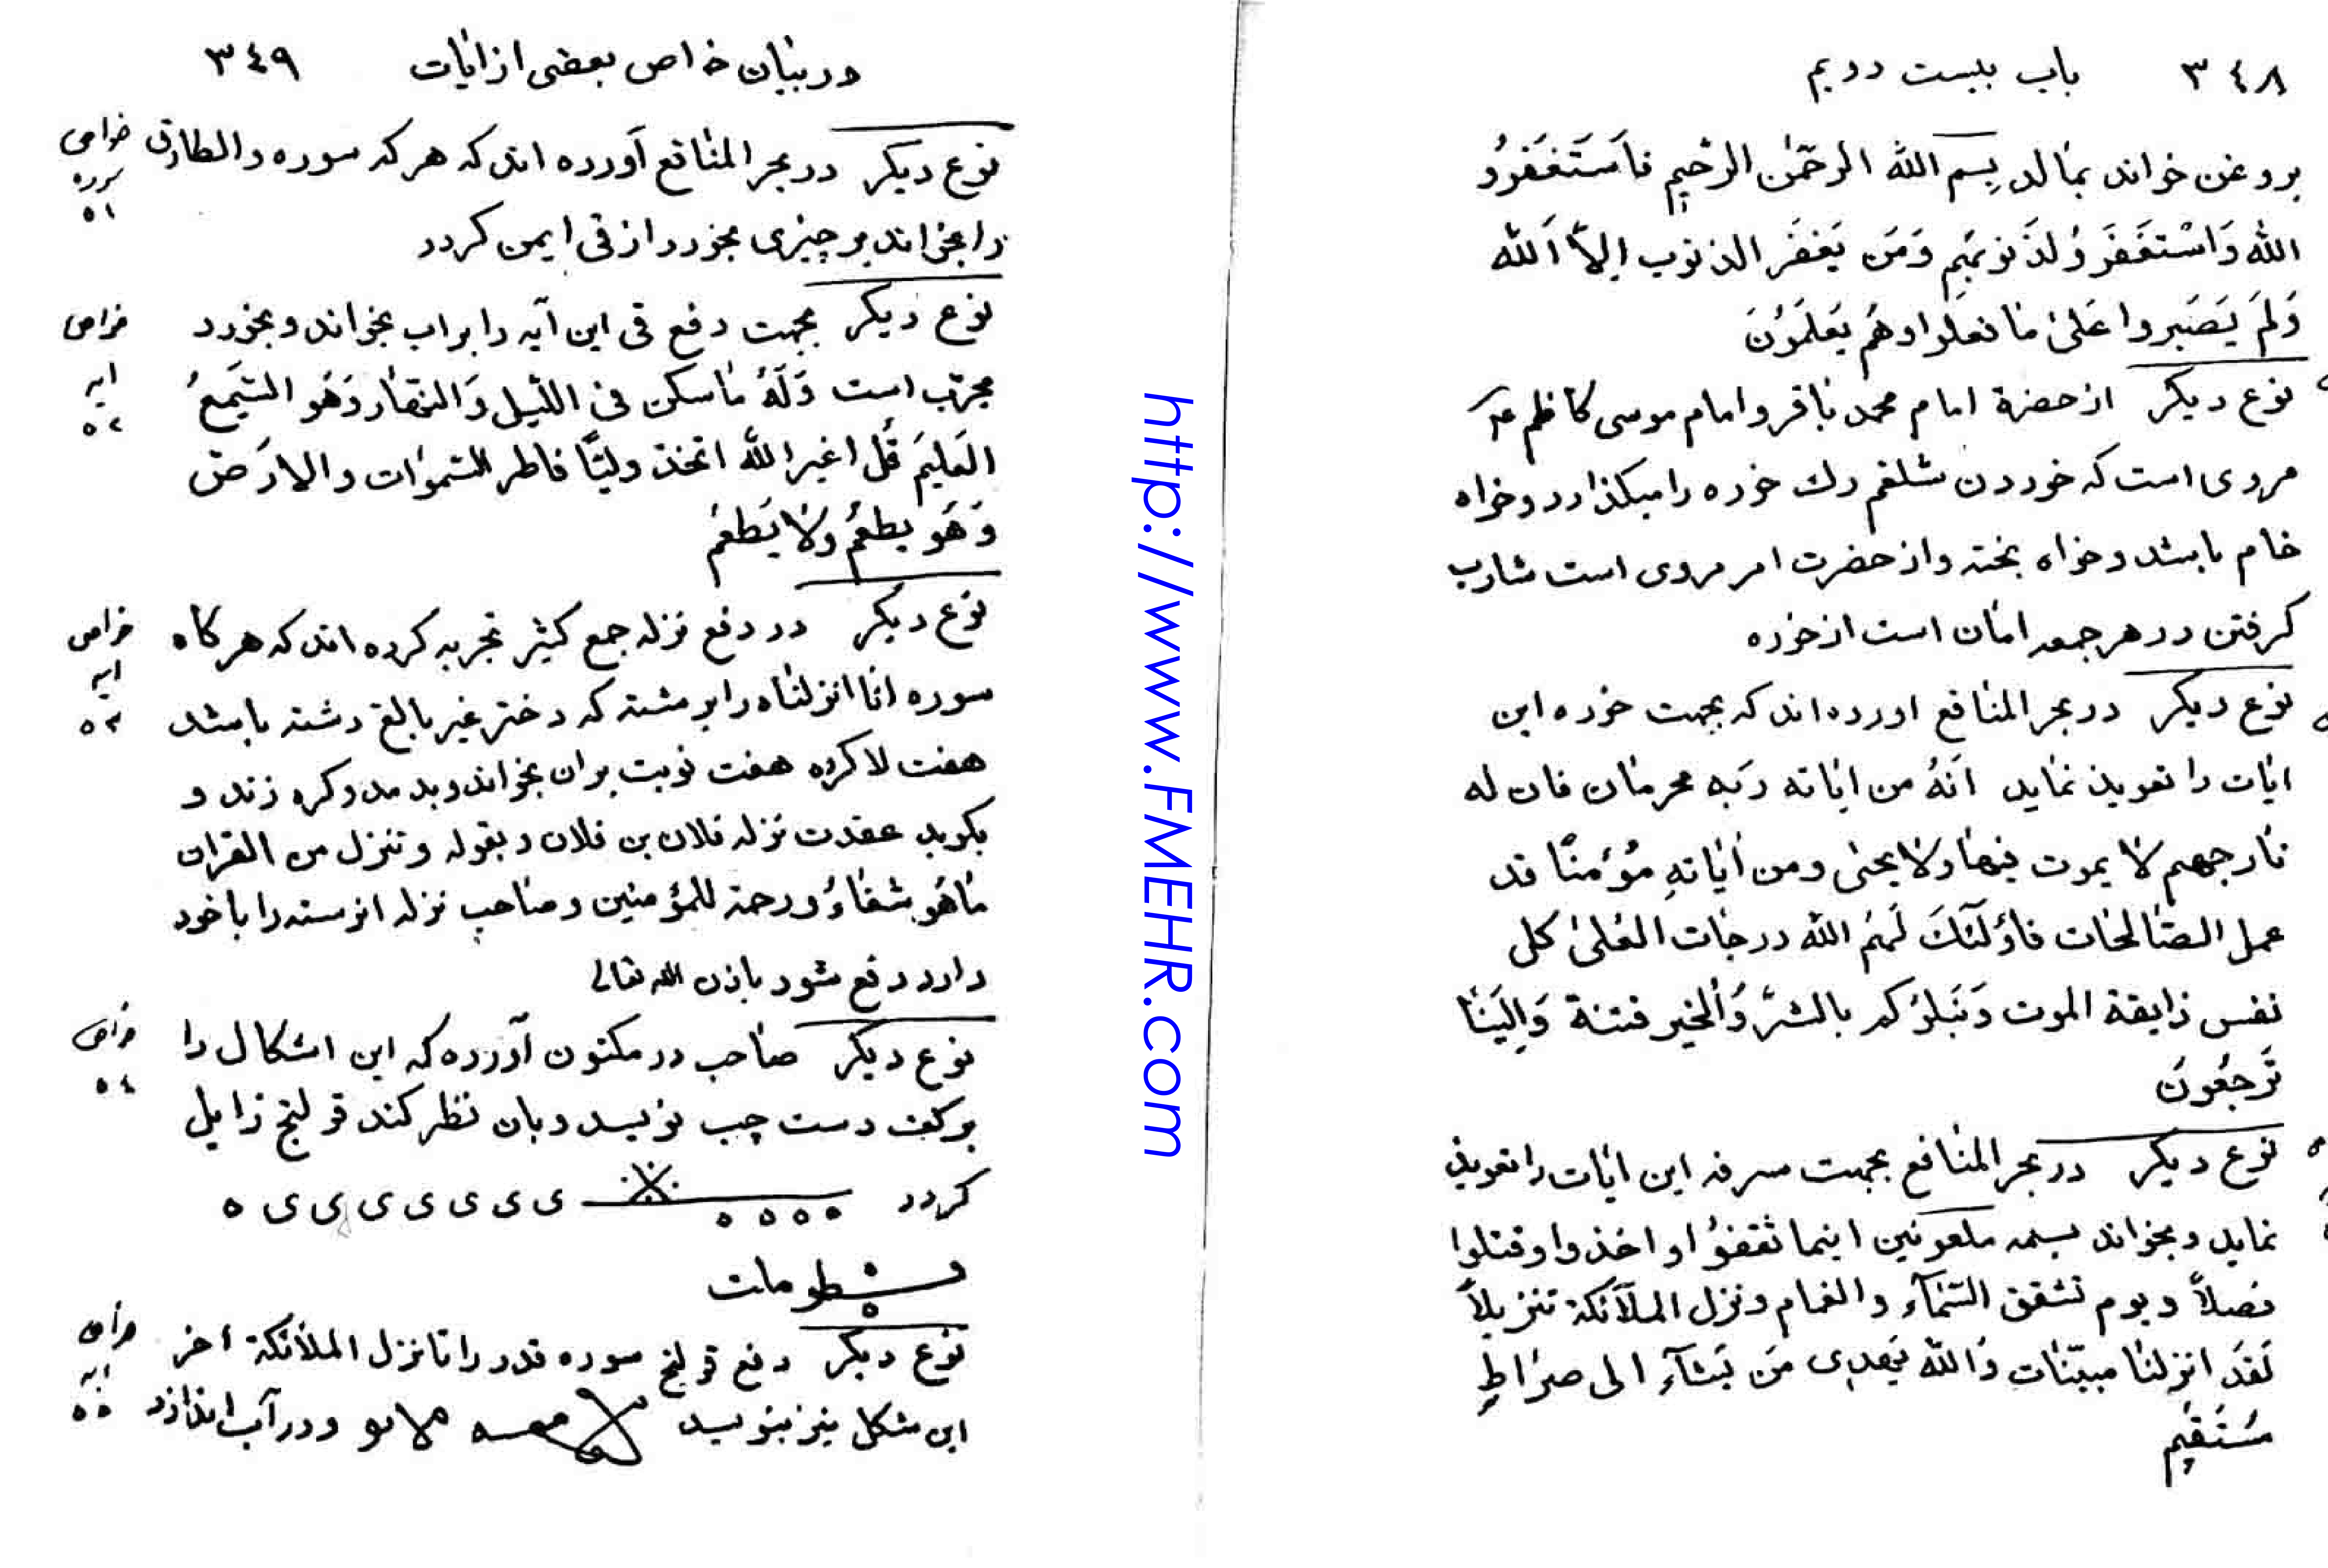 ٣٤٨ باب بیست دویم
بروغن خواند بمالد بِسم الله الرحمٰن الرّحیم فاَستَغفَرُو
الله وَاسْتغفَرَ وُلذَنوبَهِم وَمَن یَغفَر الذنوب اِلاّ اَلله
وَلَم یَصَبروا عَلیٰ مٰا نعلوا وهُم یَعلَمُونَ
نوع دیکر از حضرة امام محمد باقر و امام موسی کاظم
مروی است که خوردن شلغم رك خوره را میکذارد و خواه
خام باشد و خواه پخته و از حضرت امر مروی است شارب
کرفتن در هر جمعه امٰان است از خوره
نوع دیکر در بحر المنٰافع اورده اند که بجهت خوره این
ایٰات را تعویذ نمٰاید اَنهُ من ایٰاته رَبه مجرمٰان فان له
نٰار جهیم لاٰ یموت فیهٰا ولاٰ یحیٰی ومن اٰیٰاتهِ مُؤمنًا قد
عمل الصّٰالحٰات فاؤلَئكَ لَهمُ الله درجٰات العُلیٰ کل
نفس ذایقة الموت وَنَبلوُکم بالشرّ وَاْلخیر فتنة وَاِلَینٰا
تُرجعُونَ
نوع دیکر در بحر المنٰافع بجهت سرفه این ایٰات را تعویذ
نماید و بخواند بسمه ملعونین اینما ثقفوُا و اخذوا و قتلوا
فصلاً و یوم تشقق السّمٰآء والغمام و نزل الملآئکة تنزیلاً
لَقدَ انزلنٰا مبیّنٰات وَالله یَهدِی مَن یَشآءِ الی صرٰاطٍ
مُسَتَقیٖم
در بیٰان خواص بعضی از ایٰات ٣٤٩
نوع دیکر در بحر المنٰافع آورده اند که هر که سوره والطارق
را بخواند بر چیزی بخورد از قی ایمن کردد
خواص
سوره
٥١
نوع دیکر بجهت دفع قی این آیه را بر اب بخواند و بخورد
مجرّب است وَلَهُ مٰا سکن فی اللّیل وَالنّهٰار وَهُو السَّمیعُ
العَلیمَ قُل اغیر الله اتخذ ولیًّا فاطر السّموٰات والارَض
وَهُو یطعُم ولاٰ یَطعُم
خواص
ایه
٥٢
نوع دیکر در دفع نزله جمع کثیر تجربه کرده اند که هر کاه
سوره انٰا انزلنٰاه را بر مشته که دختر غیر بالغ رشته باشد
هفت لا کرده هفت نوبت بر ان بخواند و بدمد و کره زند و
بکوید عقدت نزله فلان بن فلان و بقوله و تنزل من القران
مٰا هُو شفٰاءُ و رحمة للمؤمنین و صٰاحب نزله انرسته را با خود
دارد دفع شود باذن الله تعالی
خواص
ایه
٥٣
نوع دیکر صٰاحب در مکنون آورده که این اشکال را
بر کف دست چپ نویسد و بان نظر کند قولنج زایل
کردد ی ی ی ی ی ی ی ه
خواص
٥٤
نوع دیکر دفع قولنج سوره قدر را تا نزل الملآئکة اخر
این شکل نیز بنویسد و در آب اندازد
خواص
ایه
٥٥
http://www.FMEHR.com